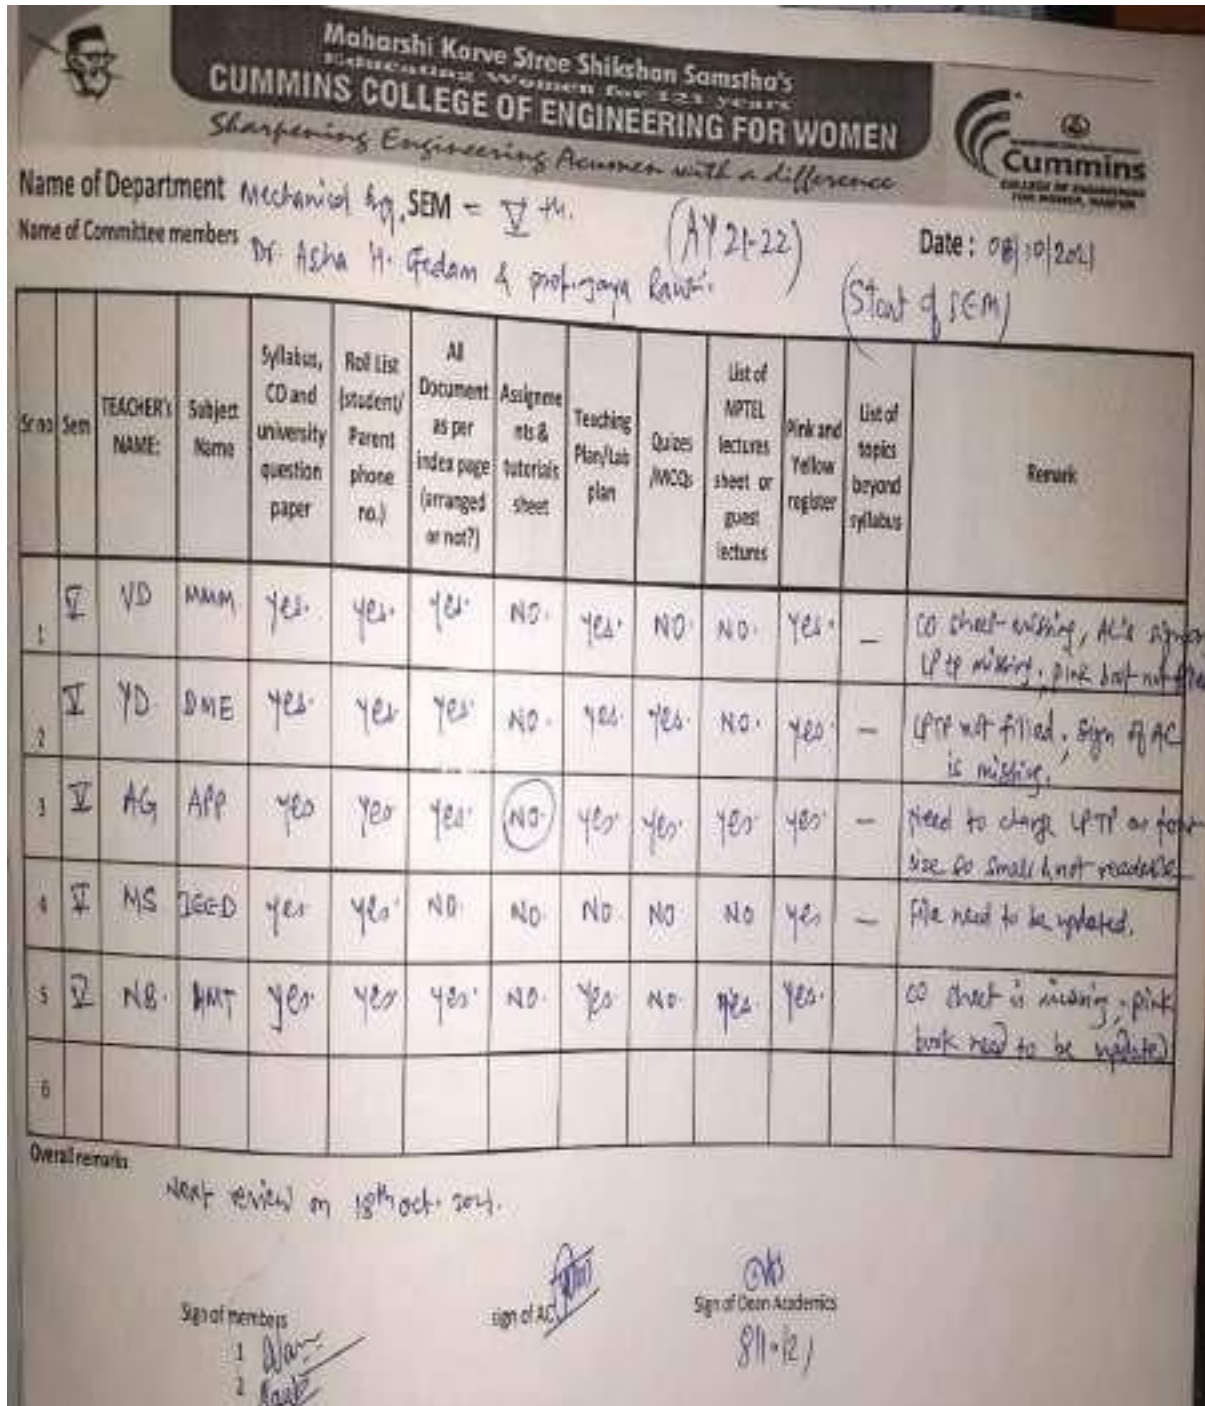 Maharshi Karve Stree Shikshan Samstha's
Educating Women for 121 years
CUMMINS COLLEGE OF ENGINEERING FOR WOMEN
Sharpening Engineering Acumen with a difference
Cummins
COLLEGE OF ENGINEERING
FOR WOMEN, NAGPUR
Name of Department Mechanical Eng, SEM = Vth. (AY 21-22) Date : 08/10/2021
Name of Committee members Dr. Asha H. Gedam & prof. Jaya (Start of SEM)
Sr no Sem TEACHER's NAME: Subject Name Syllabus, CO and university question paper Roll List (student/ Parent phone no.) All Document as per index page (arranged or not?) Assignments & tutorials sheet Teaching Plan/Lab plan Quizes /MCQs List of NPTEL lectures sheet or guest lectures Pink and Yellow register List of topics beyond syllabus Remark
1 V VD MMM yes. yes. yes. NO. yes. NO. NO. yes. — CO sheet missing, AC's sign on LPTP missing, pink book not filled
2 V YD DME yes. yes. yes. NO. yes. yes. NO. yes. — LPTP not filled, sign of AC is missing.
3 V AG APP yes yes yes. NO. yes. yes. yes. yes. — Need to change LPTP as font size so small & not readable
4 V MS yes yes. NO. NO. NO. NO. NO yes — File need to be updated.
5 V NB. yes. yes yes. NO. yes. NO. yes. yes. CO sheet is missing, pink book need to be updated
6
Overall remarks
Next review on 18th oct. 2021.
Sign of members sign of AC Sign of Dean Academics
1
2